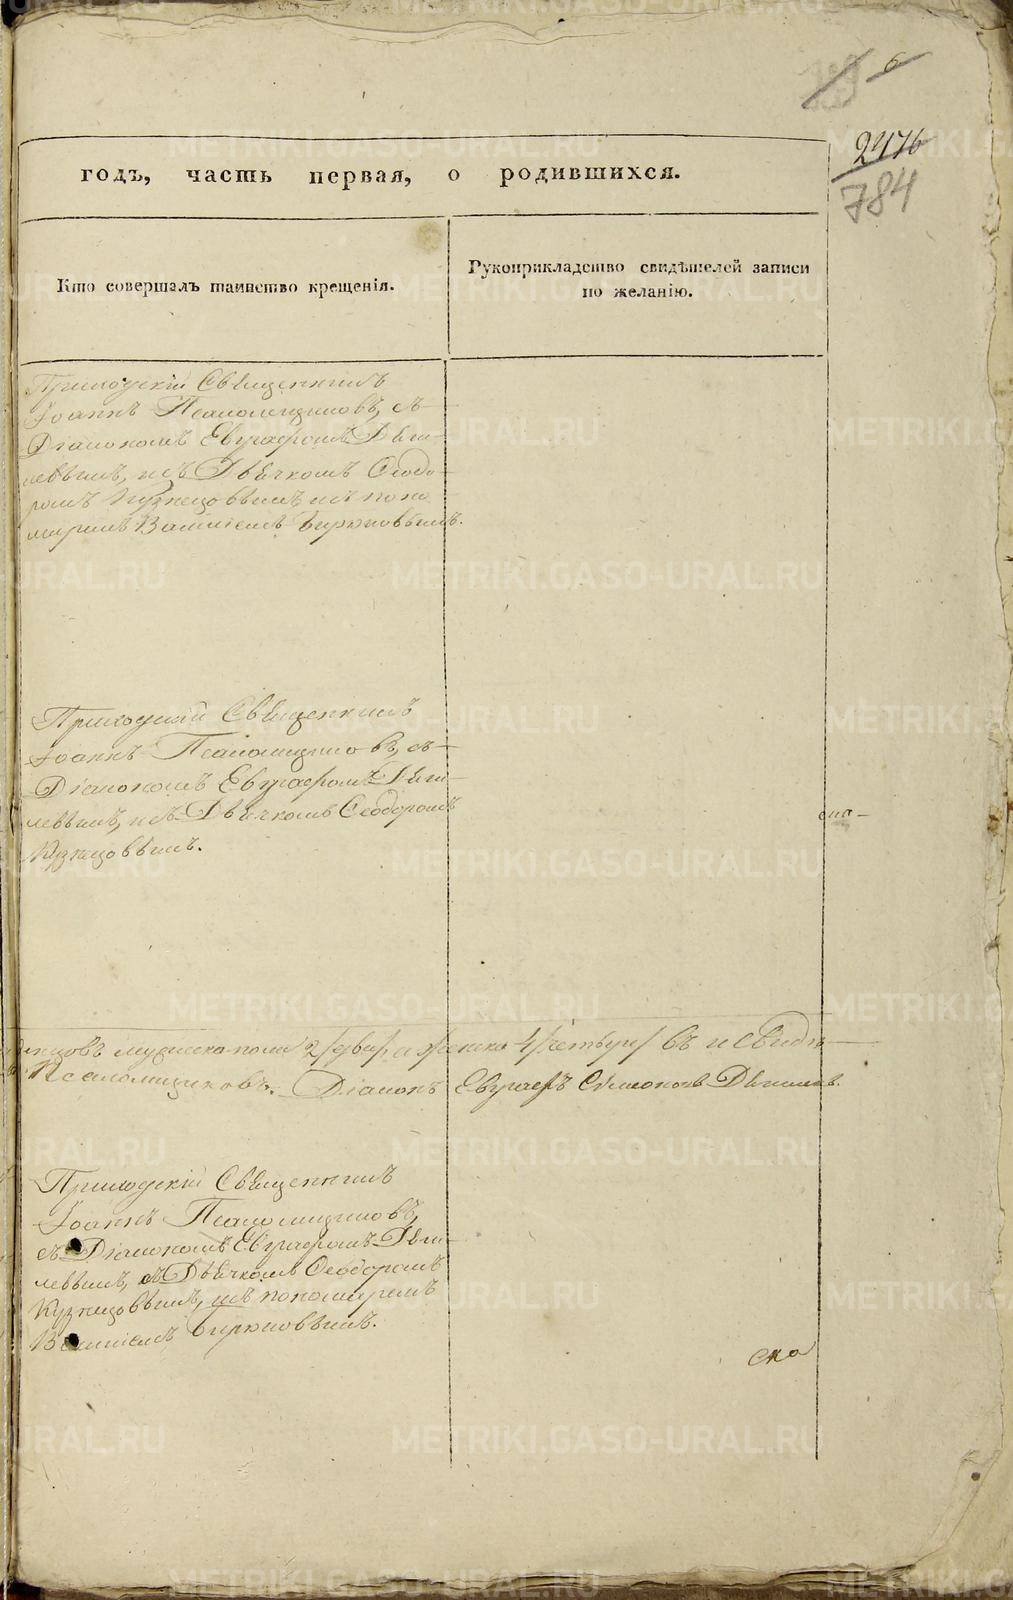 6
2476
784
годъ, часть первая, о родившихся.
Кто совершалъ таинство крещенія.
Рукоприкладство свидѣтелей записи
по желанію.
Приходскій Священникъ
Іоаннъ Псаломщиковъ, съ
Діакономъ Евграфомъ Дѣги-
левымъ, и съ Дьячкомъ Ѳеодо-
ромъ Кузнецовымъ и съ поно-
маремъ Бирюковымъ.
Приходскій Священникъ
Іоаннъ Псаломщиковъ, съ
Діакономъ Евграфомъ Дѣги-
левымъ, и съ Дьячкомъ Ѳеодоромъ
Кузнецовымъ.
мужеска пола 2/два/ а женска 4/четыре/
Псаломщиковъ. Діаконъ Евграфъ Дѣгилевъ.
Приходскій Священникъ
Іоаннъ Псаломщиковъ,
съ Діакономъ Евграфомъ Дѣги-
левымъ, съ Дьячкомъ Ѳеодоромъ
Кузнецовымъ, и съ пономаремъ
Бирюковымъ.
ска
METRIKI.GASO-URAL.RU